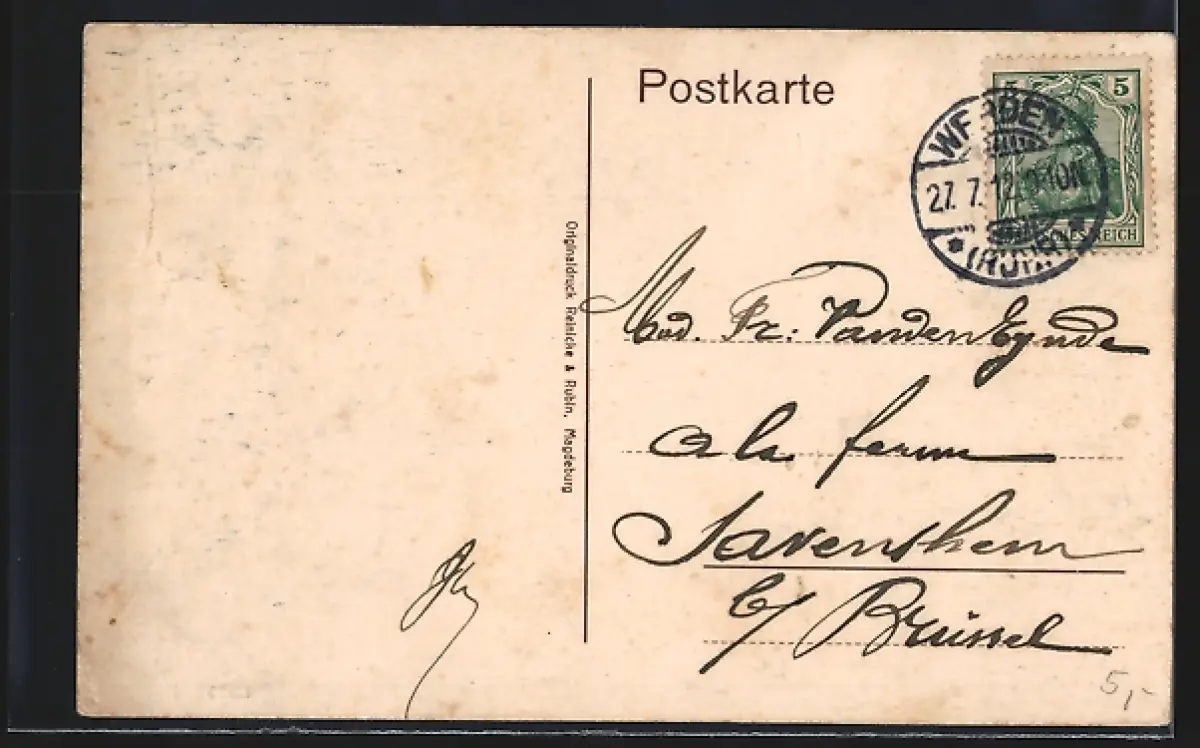 Postkarte
5 5
DEUTSCHES REICH
WERDEN
27. 7. 12. 9-10N
* (RUHR) *
Originaldruck Reinicke & Rubin, Magdeburg
Mad. Fr: VandenEynde
a la ferm
Saventhem
b/ Brüssel
5,-